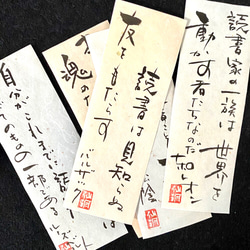 読書家の一族は世界を
動かす者たちなのだ ナポレオン
読書は見知らぬ
友をもたらす
バルザック
魂の
陰
自分がこれまでに
べてのもの一部である